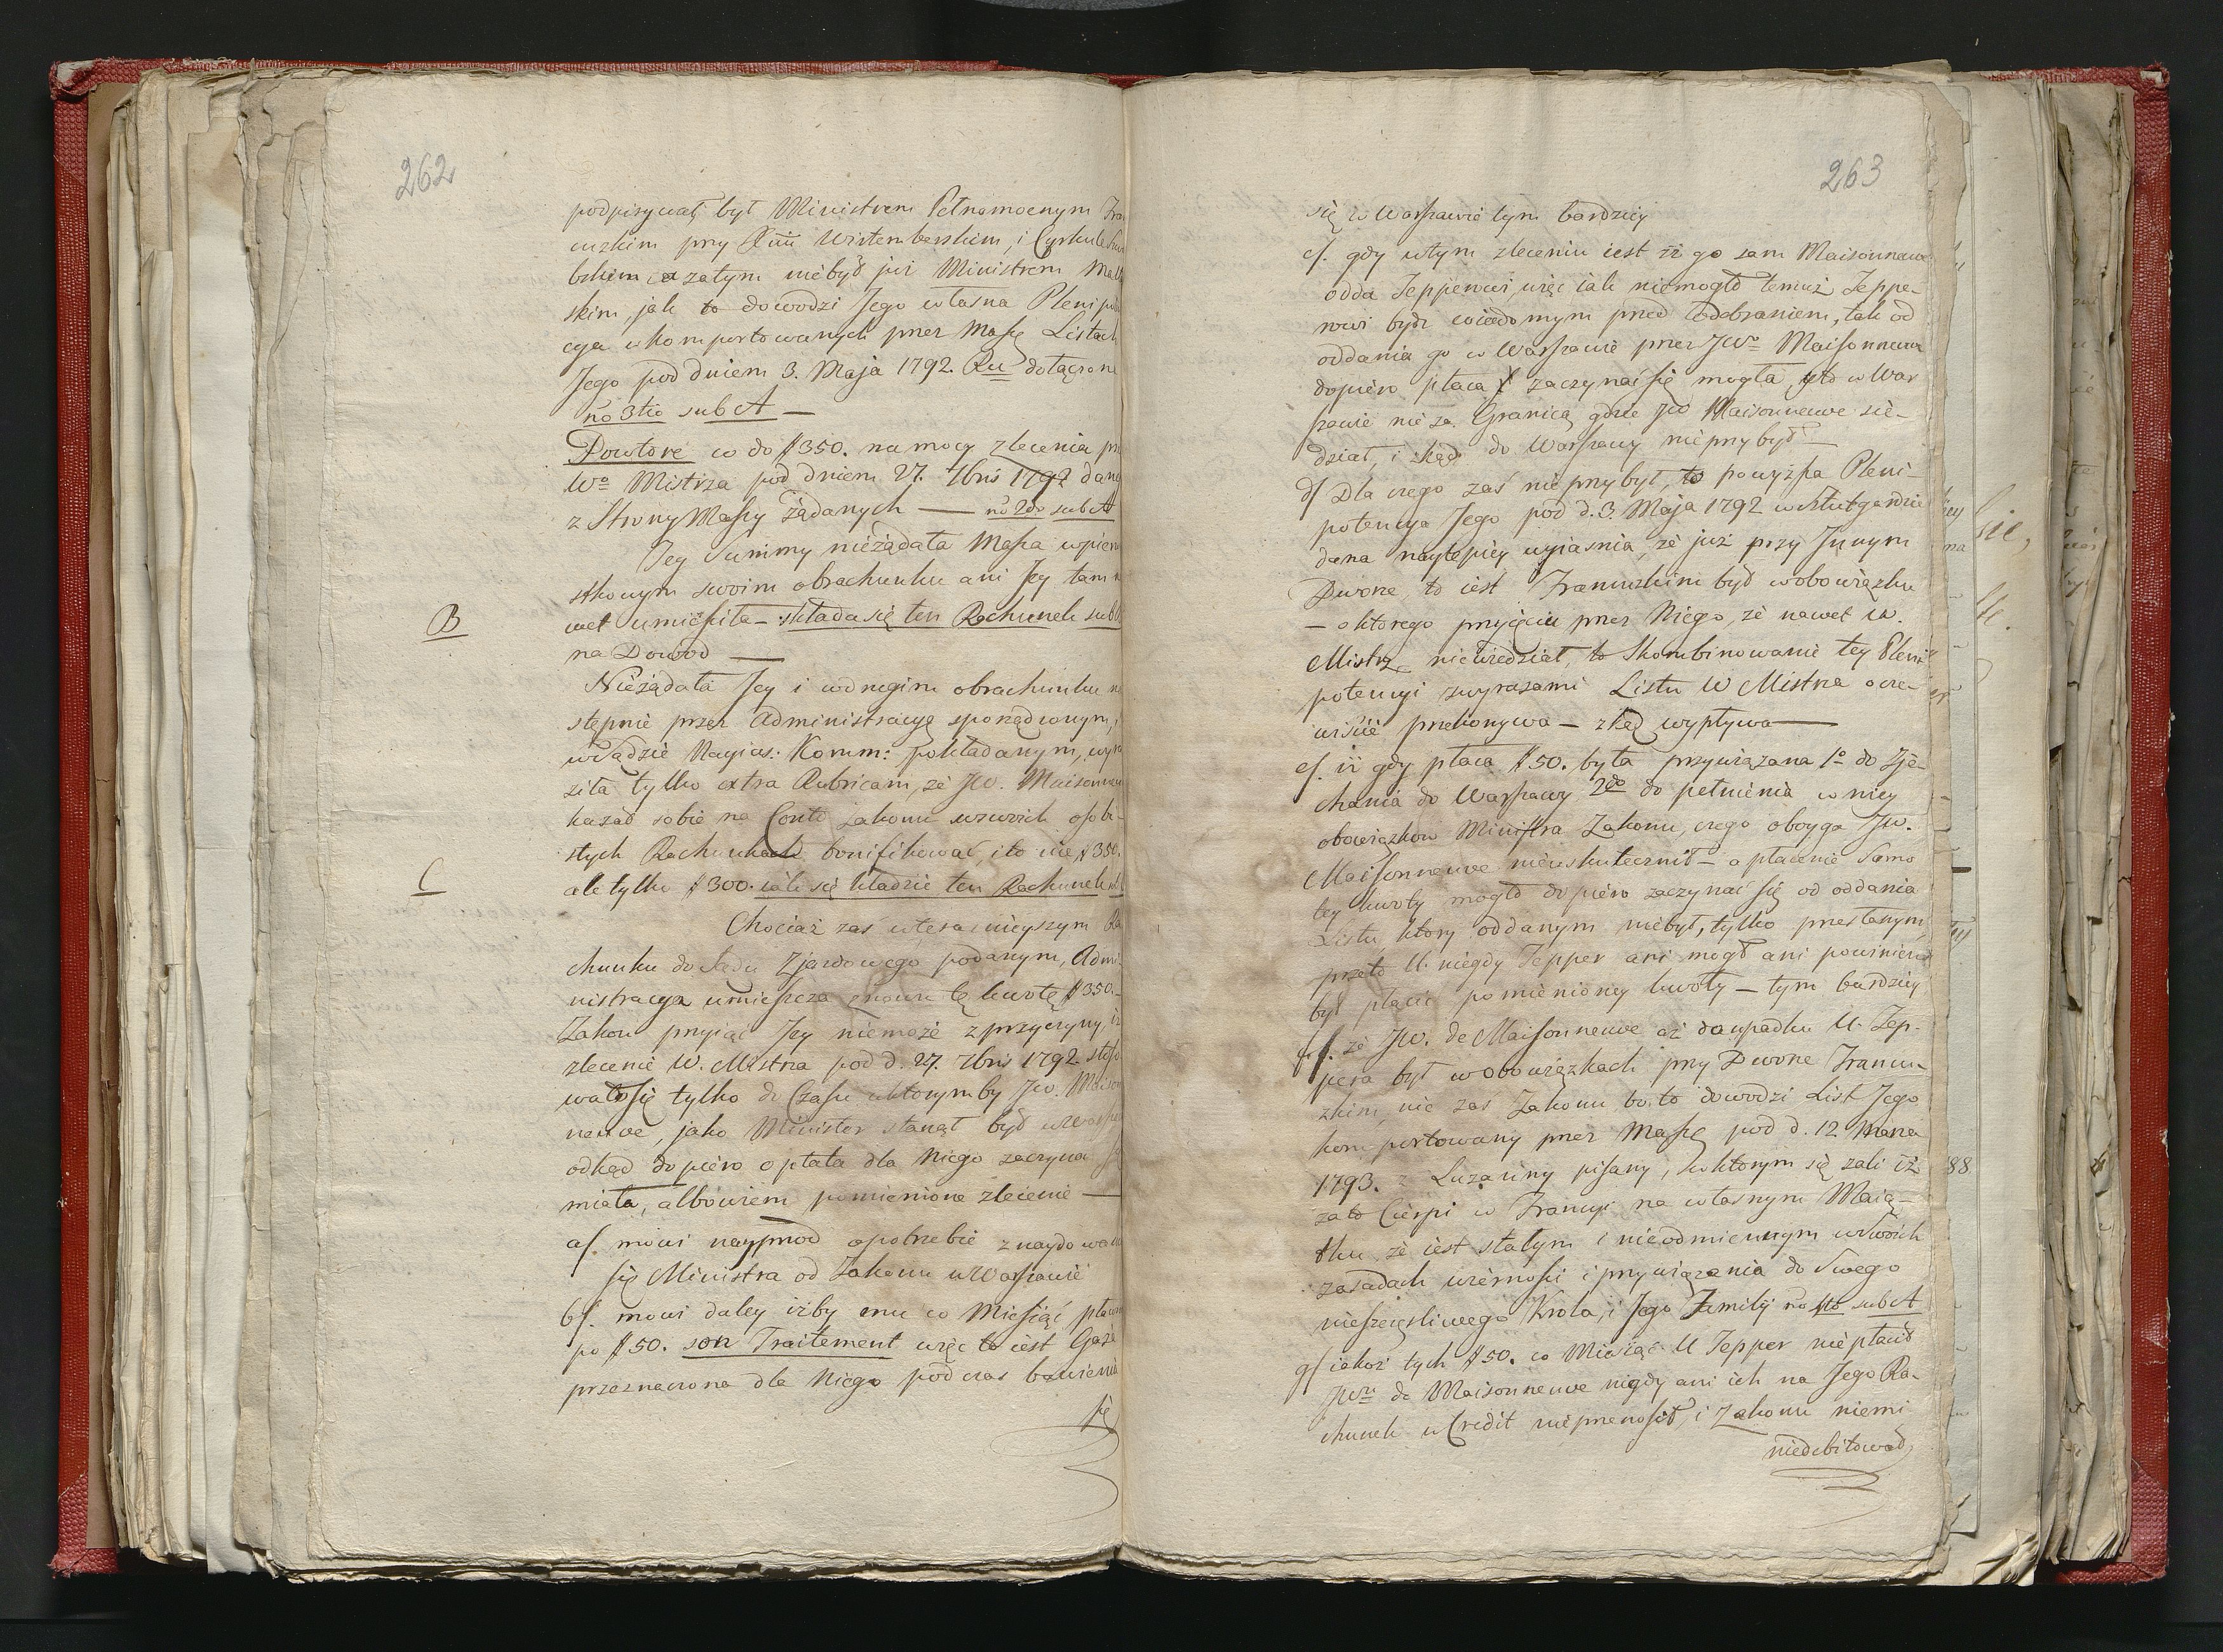 262
podpisywał był Ministrem Pełnomocnym Fran
cuzkim przy Xciu Wirtemberskim, i Cyrkule Szwa
bskim a zatym niebył już Ministrem Malt
skim, jak to dowodzi Jego własna Plenipoten
cya w komportowanych przez Massę Listach
Jego pod dniem 3. Maja 1792. Ru dołączona
no 3tio sub A —
Powtore co do # 350. na mocy zlecenia przez
Wo Mistrza pod dniem 27. 7bris 1792 dane
z Strony Massy żądanych — no 2do sub A
Jey Summy nieżądała Massa w pierw
stkowym swoim obrachunku ani Jey tam na
wet umieściła — składa się ten Rachunek sub B
B
na Dowod —
Nieżądała Jey i w drugim obrachunku na
stępnie przez Administracyą sporządzonym, i
w Sądzie Nayias: Komm: pokładanym, wyra
ziła tylko extra Rubricam, że JW. Maisonneu
kazał sobie na Conto zakonu w swoich osobi-
stych Rachunkach bonifikować, i to nie # 350.
ale tylko # 300. iak się kładzie ten Rachunek sub
C
Chociaż zaś w terażnieyszym Ra
chunku do Sądu Zjazdowego podanym, Admi-
nistracya umieszcza znowu tę kwotę # 350.—
Zakon przyiąć Jey niemoże z przyczyny, iż
zlecenie W. Mistrza pod d. 27. 7bris 1792. stoso
wało się tylko do Czasu w którym by JW. Maison
neuve, jako Minister stanął był w Warsza
odkąd dopiero opłata dla Niego zaczynać się
miała, albowiem pomienione zlecenie —
a/. mowi nayprzod o potrzebie znaydowania
się Ministra od Zakonu w Warszawie
b/. mowi daley iżby mu co Miesiąc płacon
po # 50. son Traitement więc to iest Gaża
przeznaczona dla Niego podczas bawienia
się
263
się w Warszawie tym bardziey
c/. gdy w tym zleceniu iest iż go sam Maisonneuve
odda Tepperowi, więc iak niemogło temuż Teppe-
rowi bydz wiadomym przed odebraniem, tak od
oddania go w Warszawie przez JWo Maisonneuva
dopiero płaca zaczynać się mogła, y to w War
szawie nie za Granicą, gdzie JW Maisonneuve sie-
dział, i zkąd do Warszawy nieprzybył —
d/ Dla czego zaś nieprzybył, to powyższa Pleni-
potencya Jego pod d. 3. Maja 1792 w Stutgardzie
dana naylepiey wyiasnia, że już przy Innym
Dworze, to iest Francuzkim był w obowiązku
— o ktorego przyięciu przez Niego, że nawet W.
Mistrz niewiedział, to Skombinowanie tey Pleni
potencyi z wyrazami Listu W Mistrza oczy-
wiście przekonywa — zkąd wypływa —
e/. iż gdy płaca # 50. była przywiązana 1o do Zje-
chania do Warszawy 2do do pełnienia w niey
obowiązkow Ministra Zakonu, czego oboyga JW.
Maisonneuve nieuskutecznił — a płacenie Samo
tey kwoty mogło dopiero zaczynać się od oddania
Listu, ktory oddanym niebył, tylko przesłanym,
przeto U. niegdy Tepper ani mogł ani powinien
był płacić pomienioney kwoty — tym bardziey
f/. że JW. de Maisonneuve aż do upadku U. Tep-
pera był w obowiązkach przy Dworze Francu-
zkim, nie zaś Zakonu, bo to dowodzi List Jego
komportowany przez Massę pod d. 12 Marca
1793. z Luzanny pisany, w ktorym się żali iż
za to Cierpi w Francyi na własnym Maią-
tku że iest stałym i nieodmiennym w swoich
zasadach wierności i przywiązania do Swego
nieszczęśliwego Krola, i Jego Familij no 4to sub A
g/ iakoż tych # 50. co Miesiąc U Tepper niepłacił
JWu de Maisonneuve nigdy ani ich na Jego Ra-
chunek w Credit nieprzenosił, i Zakonu niemi
niedebitował,